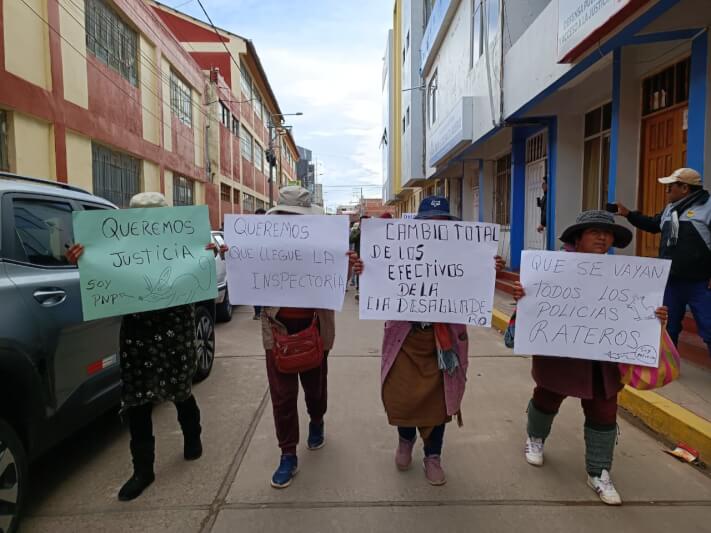 QUEREMOS
JUSTICIA
SOY
PNP
QUEREMOS
QUE LLEGUE LA
INSPECTORIA
CAMBIO TOTAL
DE LOS
EFECTIVOS
DE LA
CIA DESAGUADE
RO
QUE SE VAYAN
TODOS LOS
POLICIAS
RATEROS
DEFENSA PÚBLICA
Y ACCESO A LA JUSTICIA